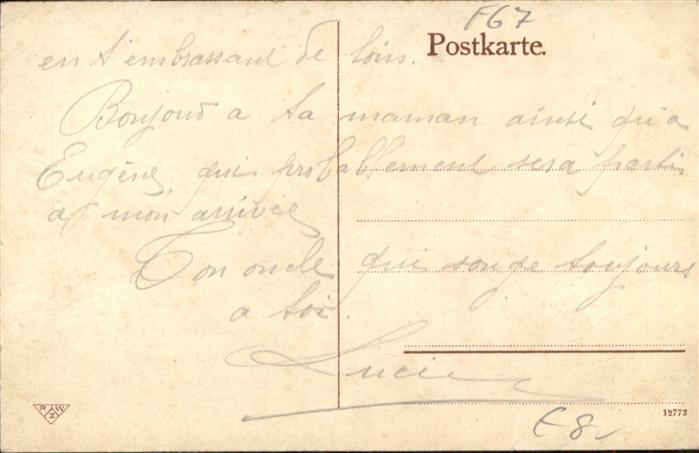 F67
Postkarte.
en t'embrassant de loin.
Bonjour a ta maman ainsi qu'a
Eugène, qui probablement sera parti
a mon arrivée
Ton oncle qui songe toujours
a toi.
Lucien
R W Z
12773